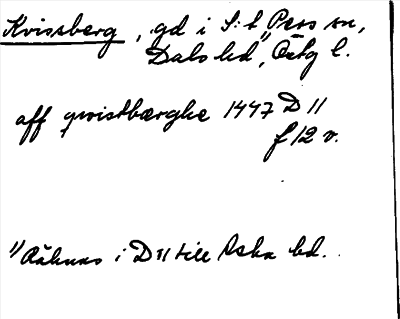 Kvissberg, gd i S:t Pers sn,
Dals hd, Östg l.
aff qwistbærghe 1447 D 11
f 12 v.
1) Räknas i D 11 till Aska hd.